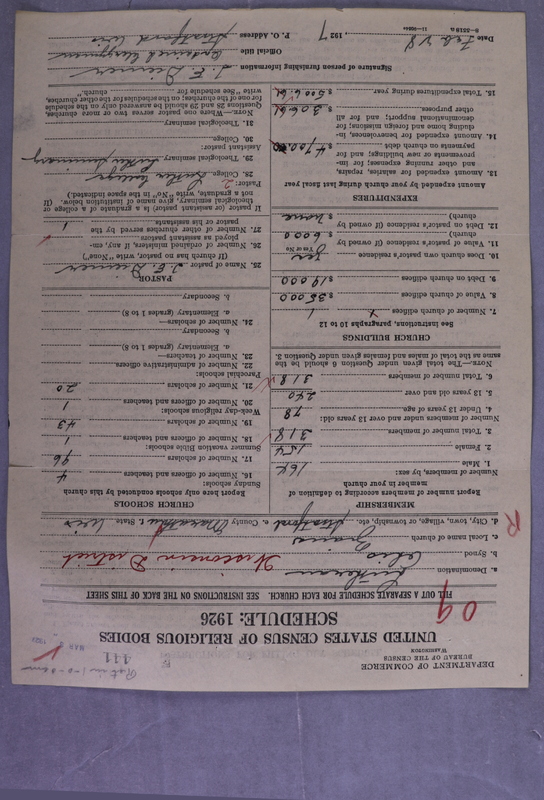 DEPARTMENT OF COMMERCE
BUREAU OF THE CENSUS
WASHINGTON
111
UNITED STATES CENSUS OF RELIGIOUS BODIES
SCHEDULE: 1926
09
FILL OUT A SEPARATE SCHEDULE FOR EACH CHURCH. SEE INSTRUCTIONS ON THE BACK OF THIS SHEET
a. Denomination Lutheran
b. Synod Ohio Wisconsin District
c. Local name of church
d. City, town, village, or township, etc. Stratford e. County Marathon f. State Wis
R
MEMBERSHIP
Report number of members according to definition of member in your church
Number of members, by sex:
1. Male 164
2. Female 154
3. Total number of members. 318
Number of members under and over 13 years old:
4. Under 13 years of age. 78
5. 13 years old and over 240
6. Total number of members 318
NOTE.—The total given under Question 6 should be the same as the total of males and females given under Question 3.
CHURCH BUILDINGS
See Instructions, paragraphs 10 to 12
7. Number of church edifices 1
8. Value of church edifices $ 35000
9. Debt on church edifices $ 19000
10. Does church own pastor's residence Yes
Yes or No
11. Value of pastor's residence (if owned by church) $ 6000
12. Debt on pastor's residence (if owned by church) $ none
EXPENDITURES
Amount expended by your church during last fiscal year
13. Amount expended for salaries, repairs, and other running expenses; for improvements or new buildings; and for payments on church debt $ 4700.00
14. Amount expended for benevolences, including home and foreign missions; for denominational support; and for all other purposes. $ 306.61
15. Total expenditures during year $ 5006.61
CHURCH SCHOOLS
Report here only schools conducted by this church
Sunday schools:
16. Number of officers and teachers 4
17. Number of scholars 96
Summer vacation Bible schools:
18. Number of officers and teachers 1
19. Number of scholars 43
Week-day religious schools:
20. Number of officers and teachers 1
21. Number of scholars 20
Parochial schools:
22. Number of administrative officers
23. Number of teachers—
a. Elementary (grades 1 to 8)
b. Secondary
24. Number of scholars—
a. Elementary (grades 1 to 8)
b. Secondary
PASTOR
25. Name of pastor
(If church has no pastor, write "None")
26. Number of ordained ministers, if any, employed as assistant pastors
27. Number of other churches served by the pastor or his assistants. 1
If pastor (or assistant pastor) is a graduate of a college or theological seminary, give name of institution below. (If not a graduate, write "No" in the space indicated.)
Pastor: 2
28. College Luther College
29. Theological seminary Luther Seminary
Assistant pastor:
30. College
31. Theological seminary
NOTE.—Where one pastor serves two or more churches, Questions 28 and 29 should be answered only on the schedule for one of the churches; on the schedule for the other churches, write "See schedule for church."
Signature of person furnishing information
Official title Ordained Clergyman
Date Feb 28, 1927 P. O. Address Stratford Wis